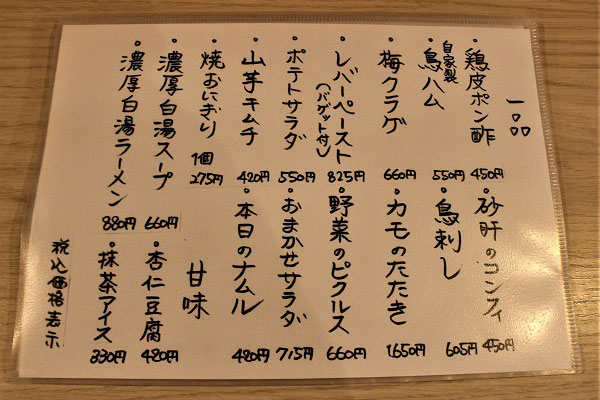 一品
・鶏皮ポン酢 450円
・砂肝のコンフィ 450円
・自家製鳥ハム 550円
・鳥刺し 605円
・梅クラゲ 660円
・カモのたたき 1650円
・レバーペースト(バゲット付) 825円
・野菜のピクルス 660円
・ポテトサラダ 550円
・おまかせサラダ 715円
・山芋キムチ 420円
・本日のナムル 420円
・焼おにぎり 1個 275円
・濃厚白湯スープ 660円
・濃厚白湯ラーメン 880円
甘味
・杏仁豆腐 420円
・抹茶アイス 330円
税込価格表示